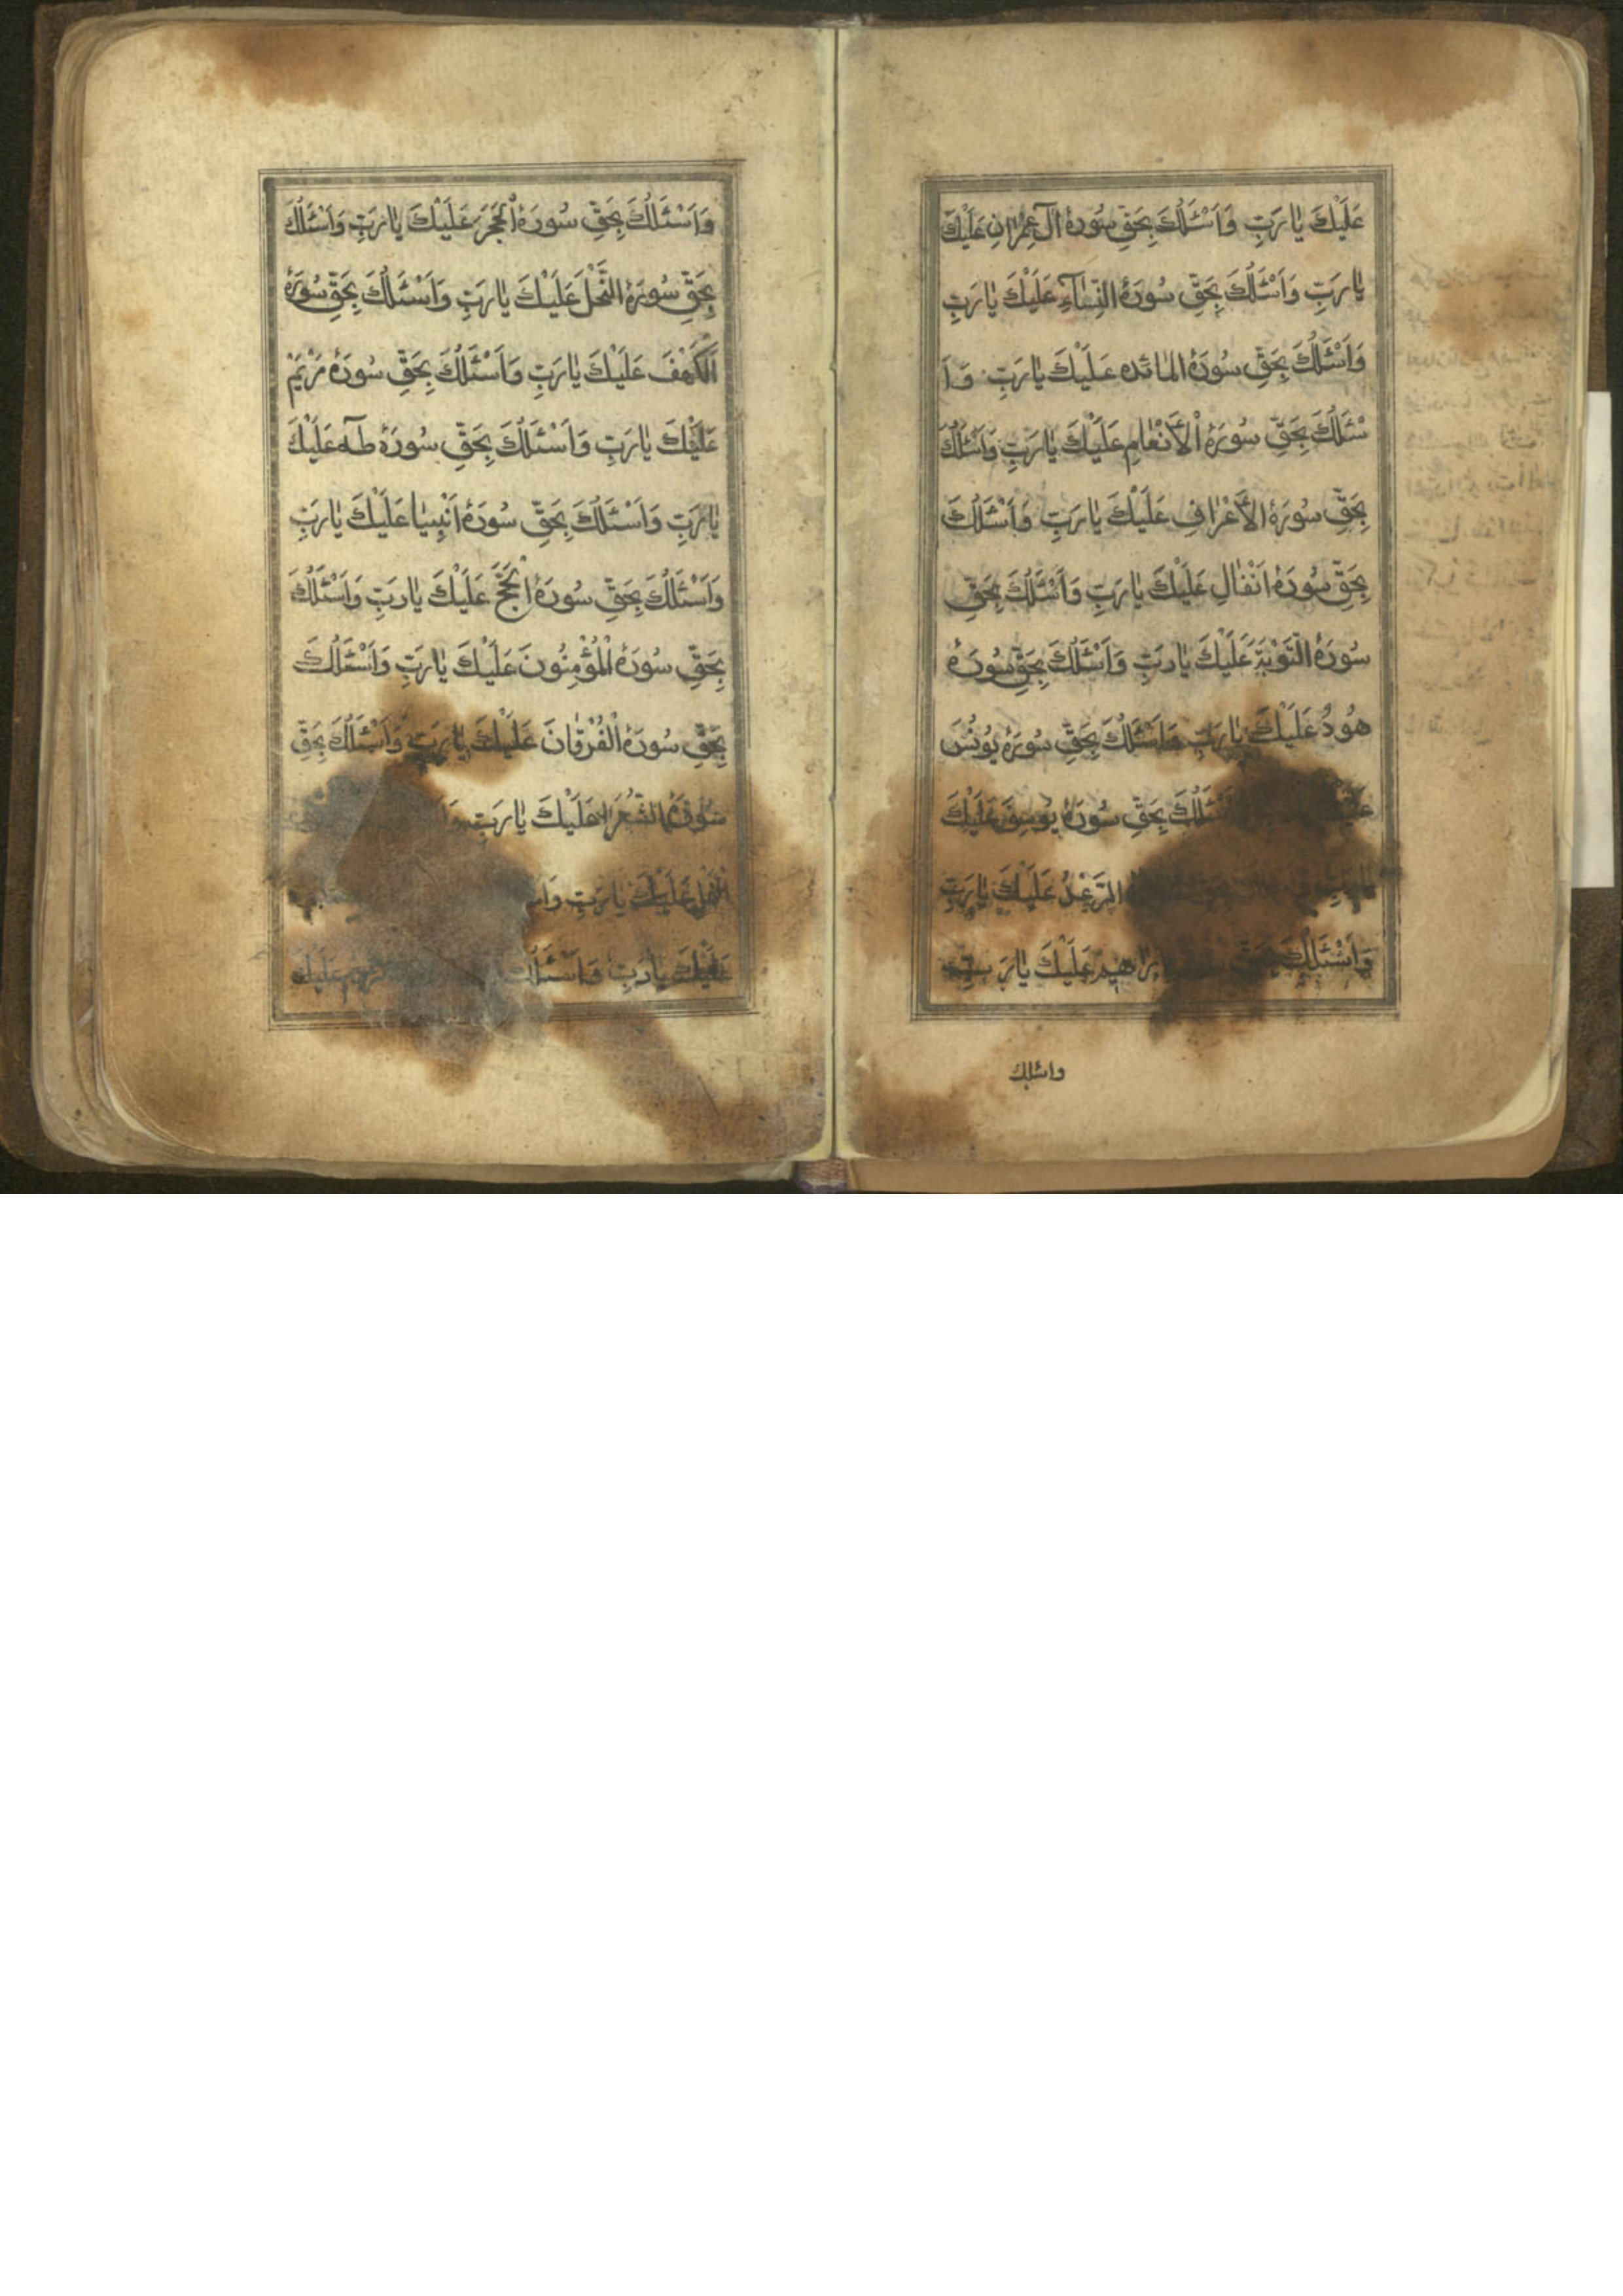 عَلَيْكَ يٰا رَبِّ وَاَسْئَلُكَ بِحَقِّ سُورَةُ اٰلِ عِمْرٰانِ عَلَيْكَ
يٰا رَبِّ وَاَسْئَلُكَ بِحَقِّ سُورَةُ النِّسٰآءِ عَلَيْكَ يٰا رَبِّ
وَاَسْئَلُكَ بِحَقِّ سُورَةُ المٰائده عَلَيْكَ يٰا رَبِّ وَ اَ
سْئَلُكَ بِحَقِّ سُورَةُ الْاَنْعٰامِ عَلَيْكَ يٰا رَبِّ وَاَسْئَلُكَ
بِحَقِّ سُورَةُ الاَعْرٰافِ عَلَيْكَ يٰا رَبِّ وَاَسْئَلُكَ
بِحَقِّ سُورَةُ اَنْفٰالِ عَلَيْكَ يٰا رَبِّ وَاَسْئَلُكَ بِحَقِّ
سُورَةُ التَّوْبَةِ عَلَيْكَ يٰا رَبِّ وَاَسْئَلُكَ بِحَقِّ سُورَةُ
هُودُ عَلَيْكَ يٰا رَبِّ وَاَسْئَلُكَ بِحَقِّ سُورَةُ يُونُسَ
بِحَقِّ سُورَةُ يُوسِفَ عَلَيْكَ
الرَّعْدُ عَلَيْكَ يٰا رَبِّ
وَاَسْئَلُكَ عَلَيْكَ يٰا رَبِّ
واسئلك
وَاَسْئَلُكَ بِحَقِّ سُورَةُ الْحَجَرَ عَلَيْكَ يٰا رَبِّ وَاَسْئَلُكَ
بِحَقِّ سُورَةُ النَّحْلَ عَلَيْكَ يٰا رَبِّ وَاَسْئَلُكَ بِحَقِّ سُورَةُ
اَلْكَهْفَ عَلَيْكَ يٰا رَبِّ وَاَسْئَلُكَ بِحَقِّ سُورَةُ مَرْيَمْ
عَلَيْكَ يٰا رَبِّ وَاَسْئَلُكَ بِحَقِّ سُورَةُ طٰه عَلَيْكَ
يٰا رَبِّ وَاَسْئَلُكَ بِحَقِّ سُورَةُ اَنْبِيٰا عَلَيْكَ يٰا رَبِّ
وَاَسْئَلُكَ بِحَقِّ سُورَةُ الْحَجَّ عَلَيْكَ يٰا رَبِّ وَاَسْئَلُكَ
بِحَقِّ سُورَةُ الْمُؤْمِنُونَ عَلَيْكَ يٰا رَبِّ وَاَسْئَلُكَ
بِحَقِّ سُورَةُ الْفُرْقٰانَ عَلَيْكَ يٰا رَبِّ وَاَسْئَلُكَ بِحَقِّ
سُورَةُ الشُّعَرٰا عَلَيْكَ يٰا رَبِّ
النَّمْلِ عَلَيْكَ يٰا رَبِّ
عَلَيْكَ يٰا رَبِّ وَاَسْئَلُكَ عَلَيْكَ